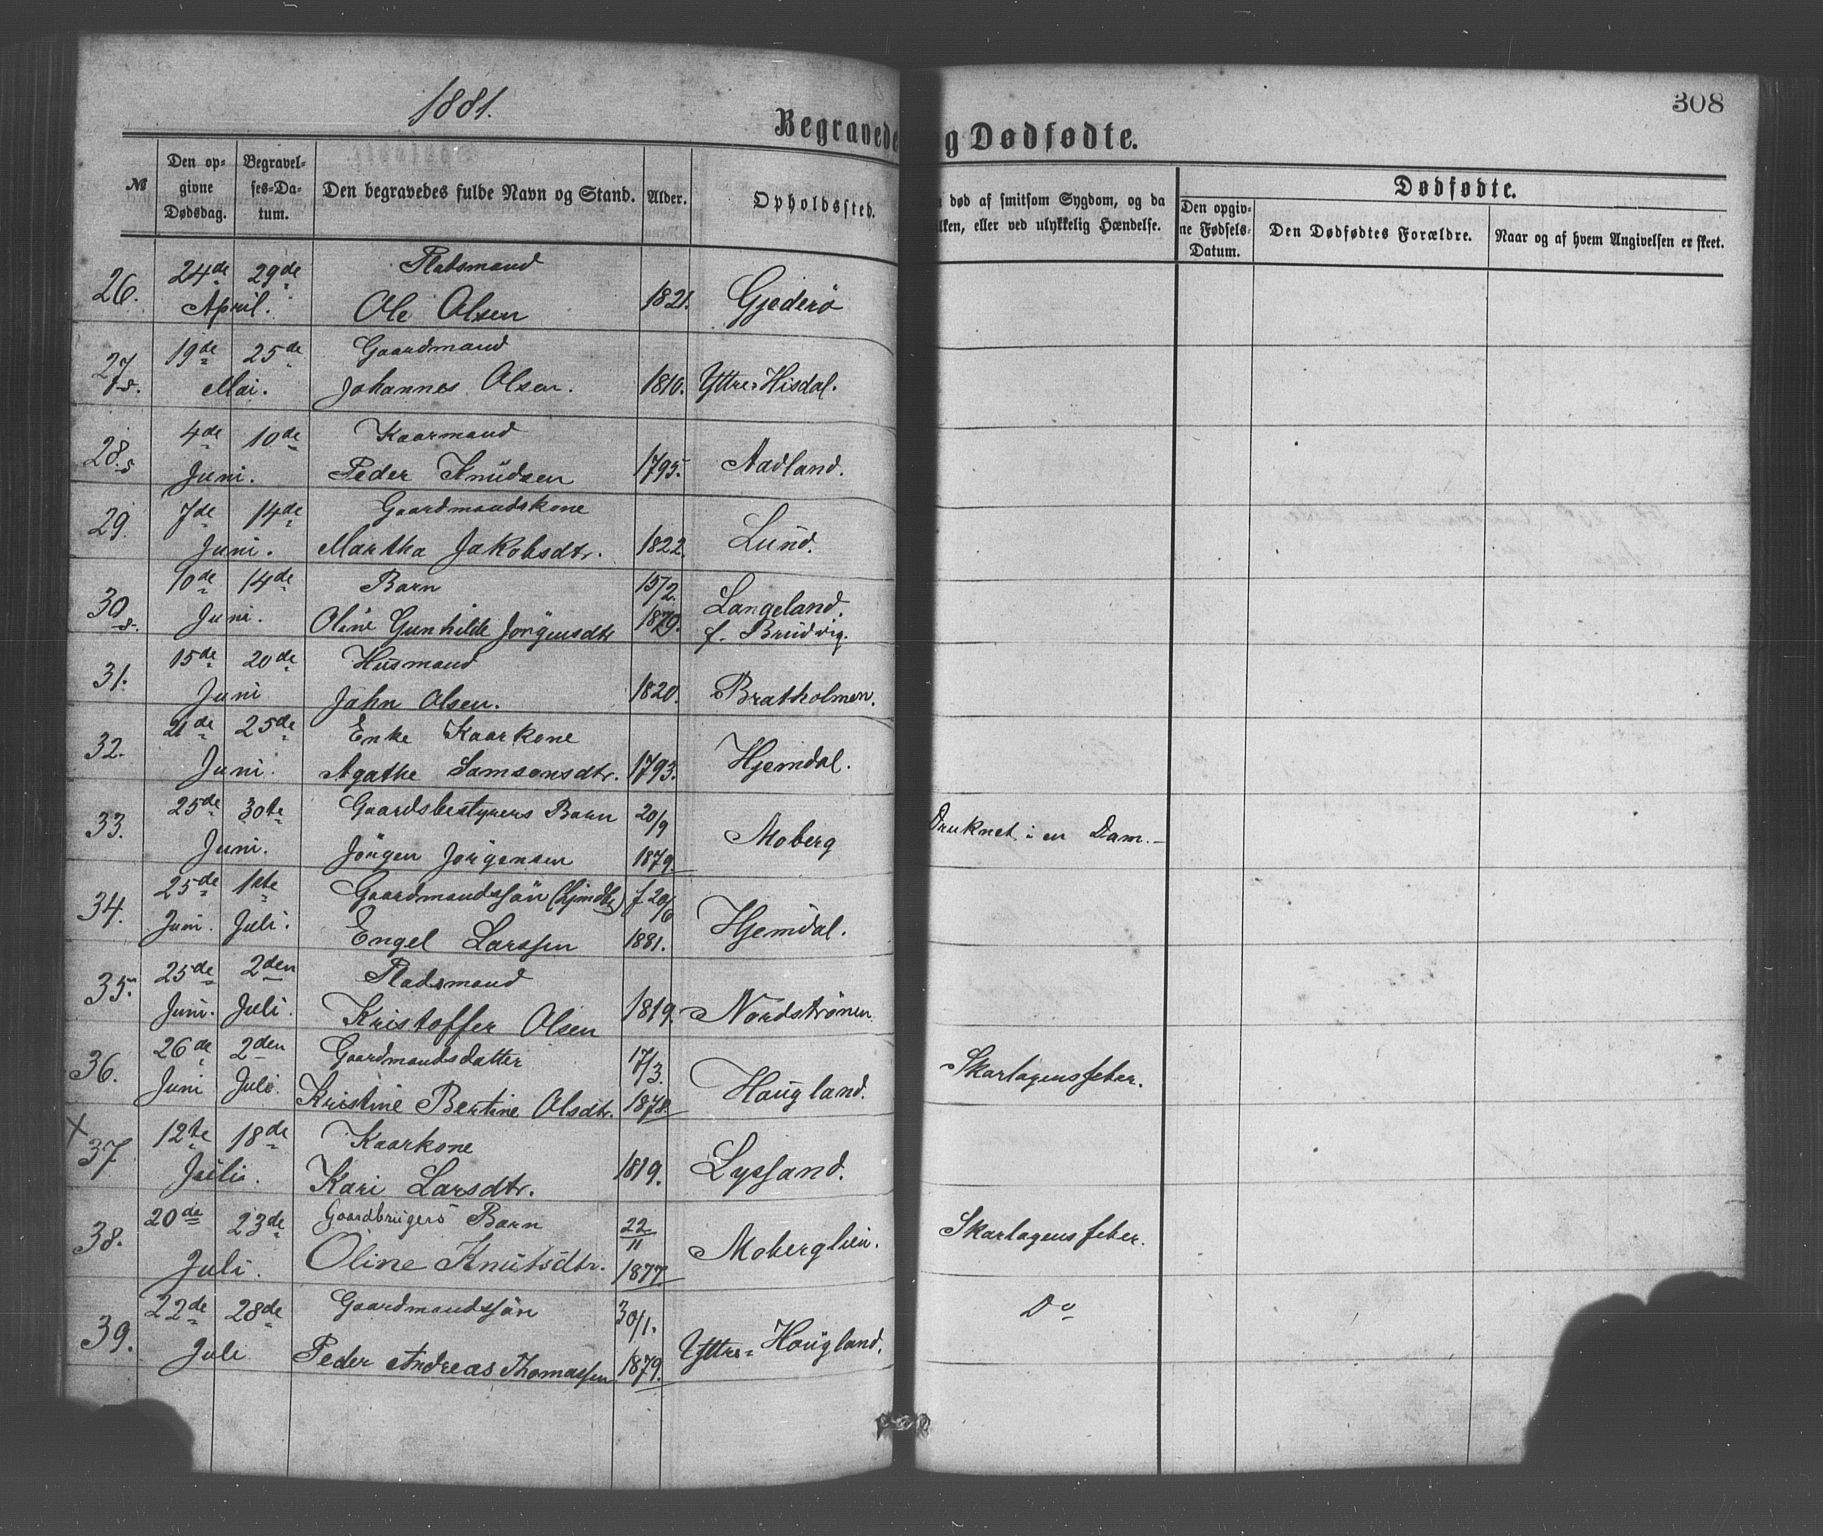 1881.
308
Begravede og Dødfødte.
№
Den opgivne Dødsdag.
Begravelses-Datum.
Den begravedes fulde Navn og Stand.
Alder.
Opholdssted.
død af smitsom Sygdom, og da
ilken, eller ved ulykkelig Hændelse.
Dødfødte.
Den opgivne Fødsels-Datum.
Den Dødfødtes Forældre.
Naar og af hvem Angivelsen er skeet.
26. 24de 29de Pladsmand
April. Ole Olsen 1821. Gjederö
27 s. 19de 25de Gaardmand
Mai. Johannes Olsen. 1810. Yttre-Hisdal.
28. s 4de 10de Kaarmand
Juni. Peder Knudsen 1795. Aadland.
29. 7de 14de Gaardmandskone
Juni. Martha Jakobsdtr. 1822. Lund.
30 s. 10de 14de Barn 15/2. Langeland.
Juni. Oline Gunhilde Jörgensdtr 1879. f. Brudvig.
31. 15de 20de Husmand
Juni Jahn Olsen. 1820. Bratholmen.
32. 21de 25de Enke Kaarkone
Juni. Agathe Samsonsdtr. 1793. Hjemdal.
33. 25de 30te Gaardsbestyrers Barn 20/9 Moberg Druknet i en Dam.
Juni. Jörgen Jörgensen 1879.
34. 25de 1ste Gaardmandssön (hjmdbt) f 20/6
Juni. Juli. Engel Larssen 1881. Hjemdal.
35. 25de 2den Pladsmand
Juni. Juli. Kristoffer Olsen 1819. Nordströnen.
36. 26de 2den Gaardmandsdatter 17/3. Skarlagensfeber.
Juni Juli. Kristine Bertine Olsdtr. 1878. Haugland.
x 37 12te 18de Kaarkone
Juli. Kari Larsdtr. 1819. Lyssand.
38. 20de 23de Gaardbrugers Barn 22/11 Skarlagensfeber.
Juli. Oline Knutsdtr. 1877. Moberglien.
39. 22de 28de Gaardmandssön 30/1. Do
Juli Peder Andreas Thomassen 1879. Yttre-Haugland.